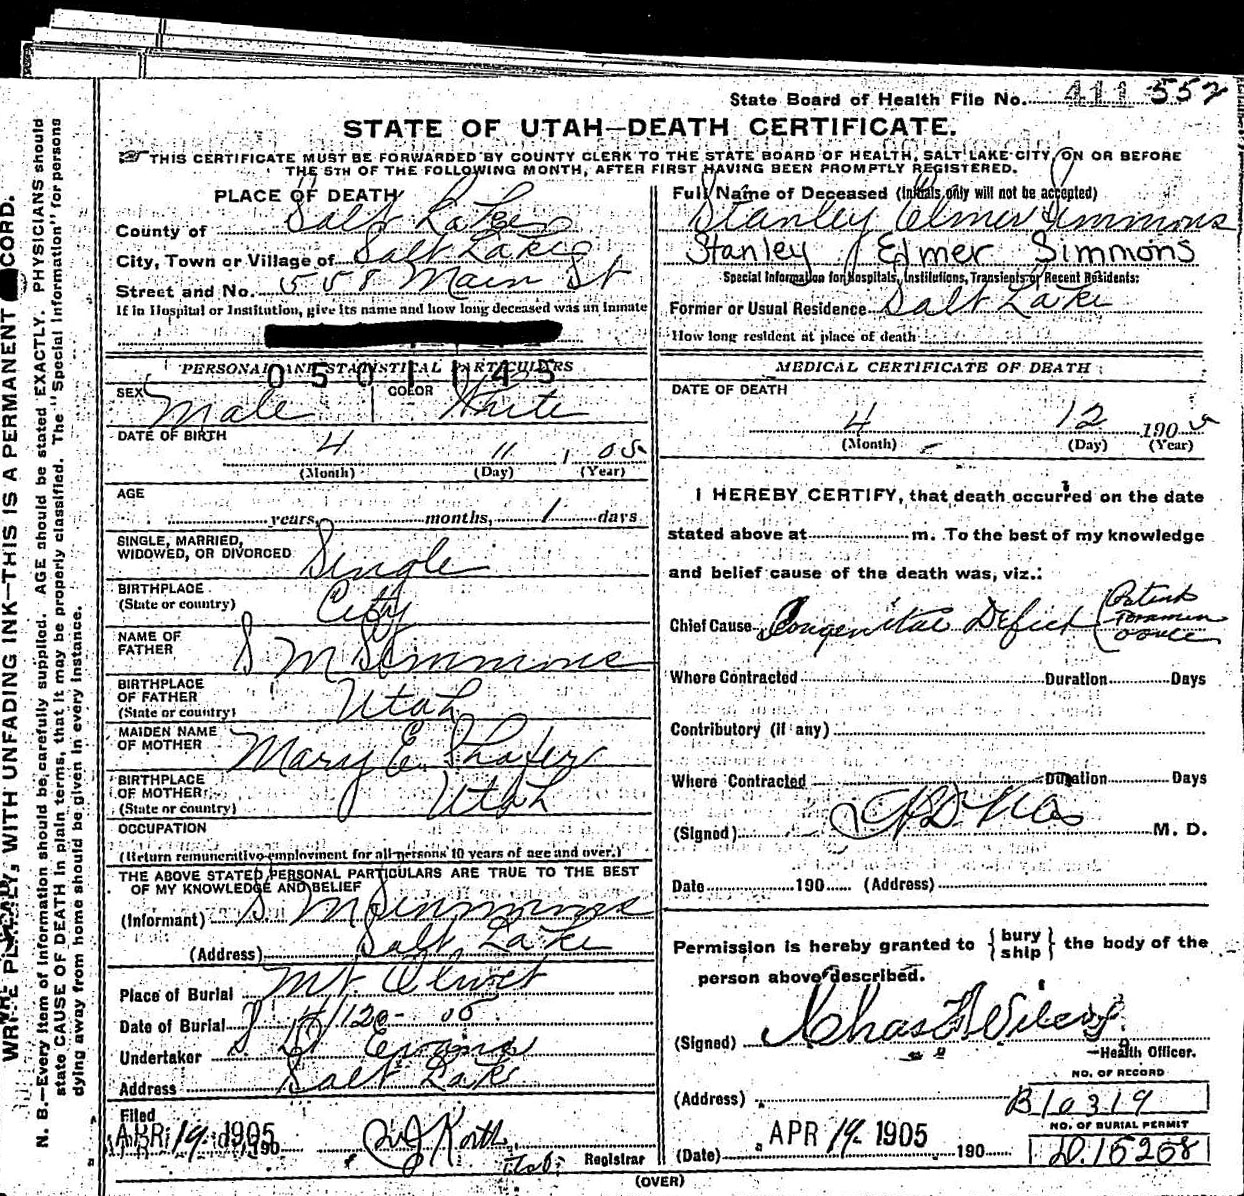 State Board of Health File No. 411 552
STATE OF UTAH—DEATH CERTIFICATE.
THIS CERTIFICATE MUST BE FORWARDED BY COUNTY CLERK TO THE STATE BOARD OF HEALTH, SALT LAKE CITY, ON OR BEFORE
THE 5TH OF THE FOLLOWING MONTH, AFTER FIRST HAVING BEEN PROMPTLY REGISTERED.
PLACE OF DEATH
County of Salt Lake
City, Town or Village of Salt Lake
Street and No. 558 Main St
If in Hospital or Institution, give its name and how long deceased was an inmate
Full Name of Deceased (Initials only will not be accepted)
Stanley Elmer Simmons
Stanley Elmer Simmons
Special Information for Hospitals, Institutions, Transients or Recent Residents:
Former or Usual Residence Salt Lake
How long resident at place of death
PERSONAL AND STATISTICAL PARTICULARS
0501145
SEX Male COLOR White
DATE OF BIRTH 4 11 1 05
(Month) (Day) (Year)
AGE
years, months, 1 days
SINGLE, MARRIED,
WIDOWED, OR DIVORCED Single
BIRTHPLACE
(State or country) City
NAME OF
FATHER S M Simmons
BIRTHPLACE
OF FATHER
(State or country) Utah
MAIDEN NAME
OF MOTHER Mary E. Shafer
BIRTHPLACE
OF MOTHER
(State or country) Utah
OCCUPATION
(Return remunerative employment for all persons 10 years of age and over.)
THE ABOVE STATED PERSONAL PARTICULARS ARE TRUE TO THE BEST
OF MY KNOWLEDGE AND BELIEF
(Informant) S M Simmons
(Address) Salt Lake
Place of Burial Mt Olivet
Date of Burial 4/12 - 05
Undertaker S D Evans
Address Salt Lake
Filed
APR 19 1905 190
Registrar
MEDICAL CERTIFICATE OF DEATH
DATE OF DEATH
4 12 1905
(Month) (Day) (Year)
I HEREBY CERTIFY, that death occurred on the date
stated above at m. To the best of my knowledge
and belief cause of the death was, viz.:
Chief Cause Congenital Defect (Patent
Foramen
Ovale
Where Contracted Duration Days
Contributory (if any)
Where Contracted Duration Days
(Signed) M. D.
Date 190 (Address)
Permission is hereby granted to {bury
ship} the body of the
person above described.
(Signed) Chas F Wilcox
—Health Officer.
NO. OF RECORD
(Address) B10319
NO. OF BURIAL PERMIT
(Date) APR 19 1905 190 D.15258
(OVER)
WRITE PLAINLY, WITH UNFADING INK—THIS IS A PERMANENT RECORD.
N. B.—Every item of information should be carefully supplied. AGE should be stated EXACTLY. PHYSICIANS should
state CAUSE OF DEATH in plain terms, that it may be properly classified. The "Special Information" for persons
dying away from home should be given in every instance.